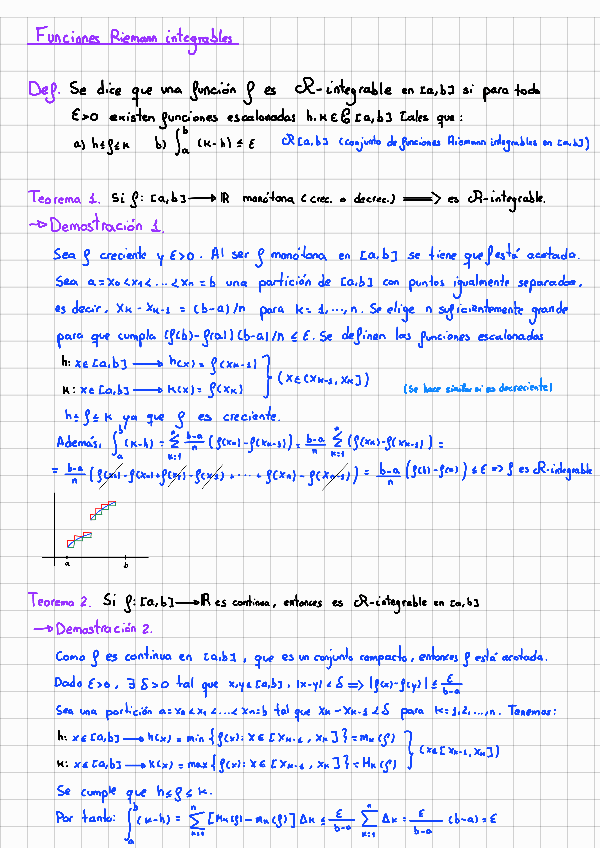 Funciones Riemann integrables
Def. Se dice que una función f es R-integrable en [a,b] si para todo
ε>0 existen funciones escalonadas h,k∈C[a,b] tales que:
a) h≤f≤k b) ∫_a^b (k-h) ≤ ε R[a,b] (conjunto de funciones Riemann integrables en [a,b])
Teorema 1. Si f:[a,b]⟶R monótona (crec. o decrec.) ⟹ es R-integrable.
→Demostración 1.
Sea f creciente y ε>0. Al ser f monótona en [a,b] se tiene que f está acotada.
Sea a=x₀<x₁<...<xₙ=b una partición de [a,b] con puntos igualmente separados,
es decir, xₖ-xₖ₋₁ = (b-a)/n para k=1,...,n. Se elige n suficientemente grande
para que cumpla (f(b)-f(a))(b-a)/n ≤ ε. Se definen las funciones escalonadas
h: x∈[a,b] ⟶ h(x) = f(xₖ₋₁)
k: x∈[a,b] ⟶ k(x) = f(xₖ) } (x∈(xₖ₋₁,xₖ]) (Se hace similar si es decreciente)
h≤f≤k ya que f es creciente.
Además, ∫_a^b (k-h) = Σ_{k=1}^n (b-a)/n (f(xₖ)-f(xₖ₋₁)) = (b-a)/n Σ_{k=1}^n (f(xₖ)-f(xₖ₋₁)) =
= (b-a)/n (f(x₁)-f(x₀)+f(x₂)-f(x₁)+...+f(xₙ)-f(xₙ₋₁)) = (b-a)/n (f(b)-f(a)) ≤ ε ⟹ f es R-integrable
a b
Teorema 2. Si f:[a,b]⟶R es continua, entonces es R-integrable en [a,b]
→Demostración 2.
Como f es continua en [a,b], que es un conjunto compacto, entonces f está acotada.
Dado ε>0, ∃ δ>0 tal que x,y∈[a,b], |x-y|<δ ⟹ |f(x)-f(y)| ≤ ε/(b-a)
Sea una partición a=x₀<x₁<...<xₙ=b tal que xₖ-xₖ₋₁<δ para k=1,2,...,n. Tenemos:
h: x∈[a,b] ⟶ h(x) = min{f(x): x∈[xₖ₋₁,xₖ]} = mₖ(f)
k: x∈[a,b] ⟶ k(x) = max{f(x): x∈[xₖ₋₁,xₖ]} = Mₖ(f) } (x∈[xₖ₋₁,xₖ])
Se cumple que h≤f≤k.
Por tanto: ∫_a^b (k-h) = Σ_{k=1}^n [Mₖ(f)-mₖ(f)] Δₖ ≤ ε/(b-a) Σ_{k=1}^n Δₖ = ε/(b-a) (b-a) = ε